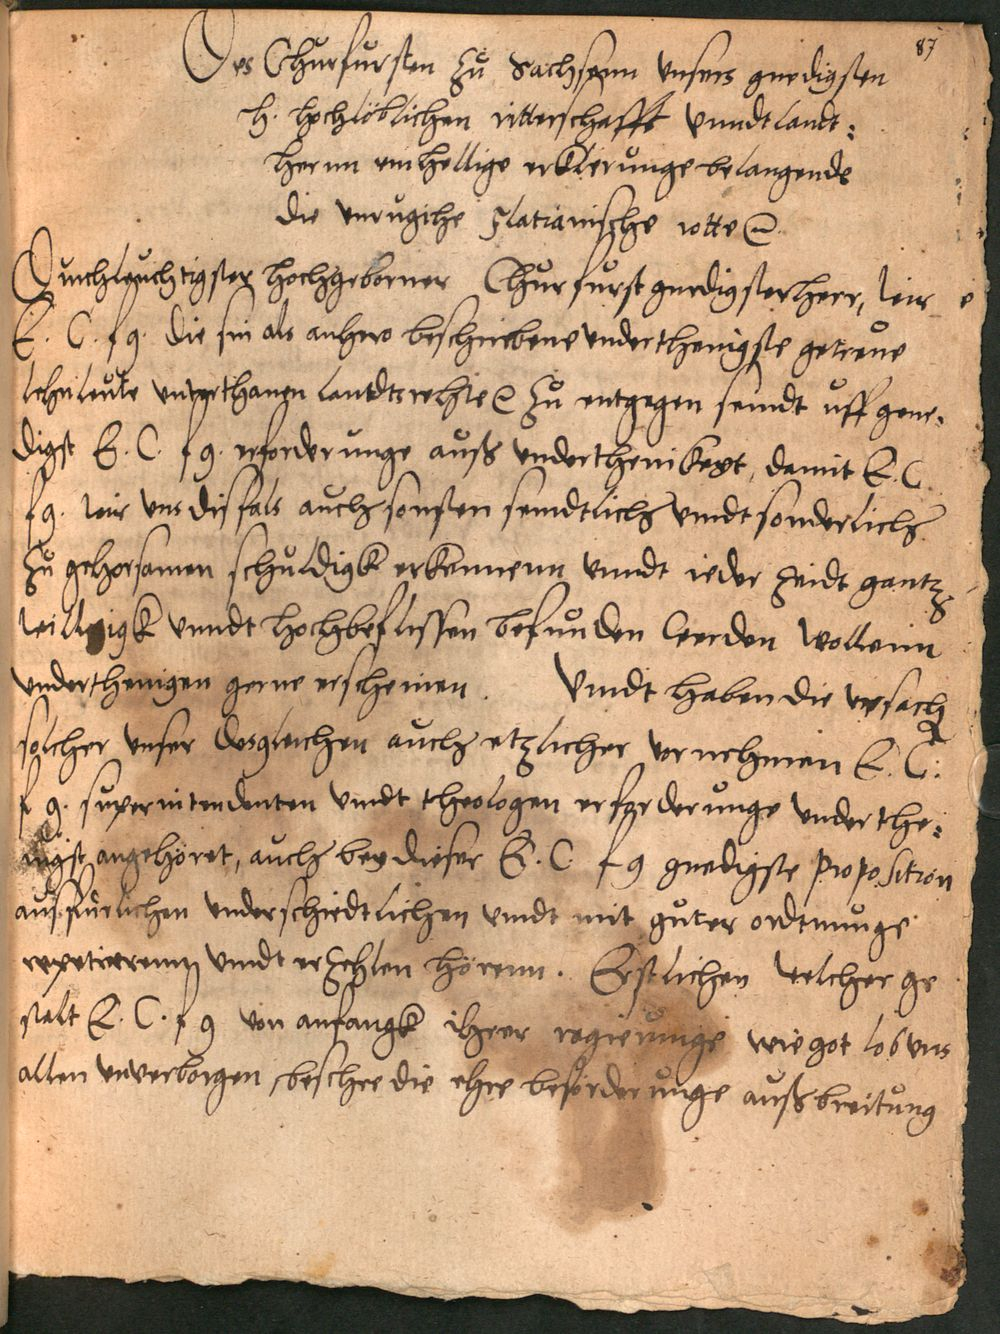 87
Des Churfursten zu Sachsenn unsers gnedigsten
h. hochlöblichen ritterschafft unndt landt:
hernn einhellige erklerunge belangende
die unrugihe flatianische rotte
Durchleuchtigster hochgeborner Churfurst gnedigster herr, wir
E. C. f g. die sin als anhero beschriebene underthenigste getreue
lehnleute unterthanen landtsrehte zu entgegen seindt uff gene,
digst E. C. f g. erforderunge auß underthenikeyt, damit E. C.
f g. wir uns disfals auch sonsten semdtlich undt sonderlich
zu gehorsamen schuldigk erkennenn unndt ieder zeidt gantz
willigk unndt hochbeflissen befunden werden wollenn
underthenigen gerne erscheinen. Undt haben die ursach
solcher unser desgleichen auch etzlicher vornehmen E. C.
f g. superintendenten undt theologen erforderunge underthe,
nigst angehöret, auch bey dieser E. C. f g gnedigste proposition
ausfürlichen underschiedtlichen undt mit guter ordtnunge
repetierenn undt erzehlen hörenn. Erstlichen welcher ge
stalt E. C. f g von anfangk ihrer regierunge wie got lob uns
allen unverborgen, die ehre beforderunge außbreitung